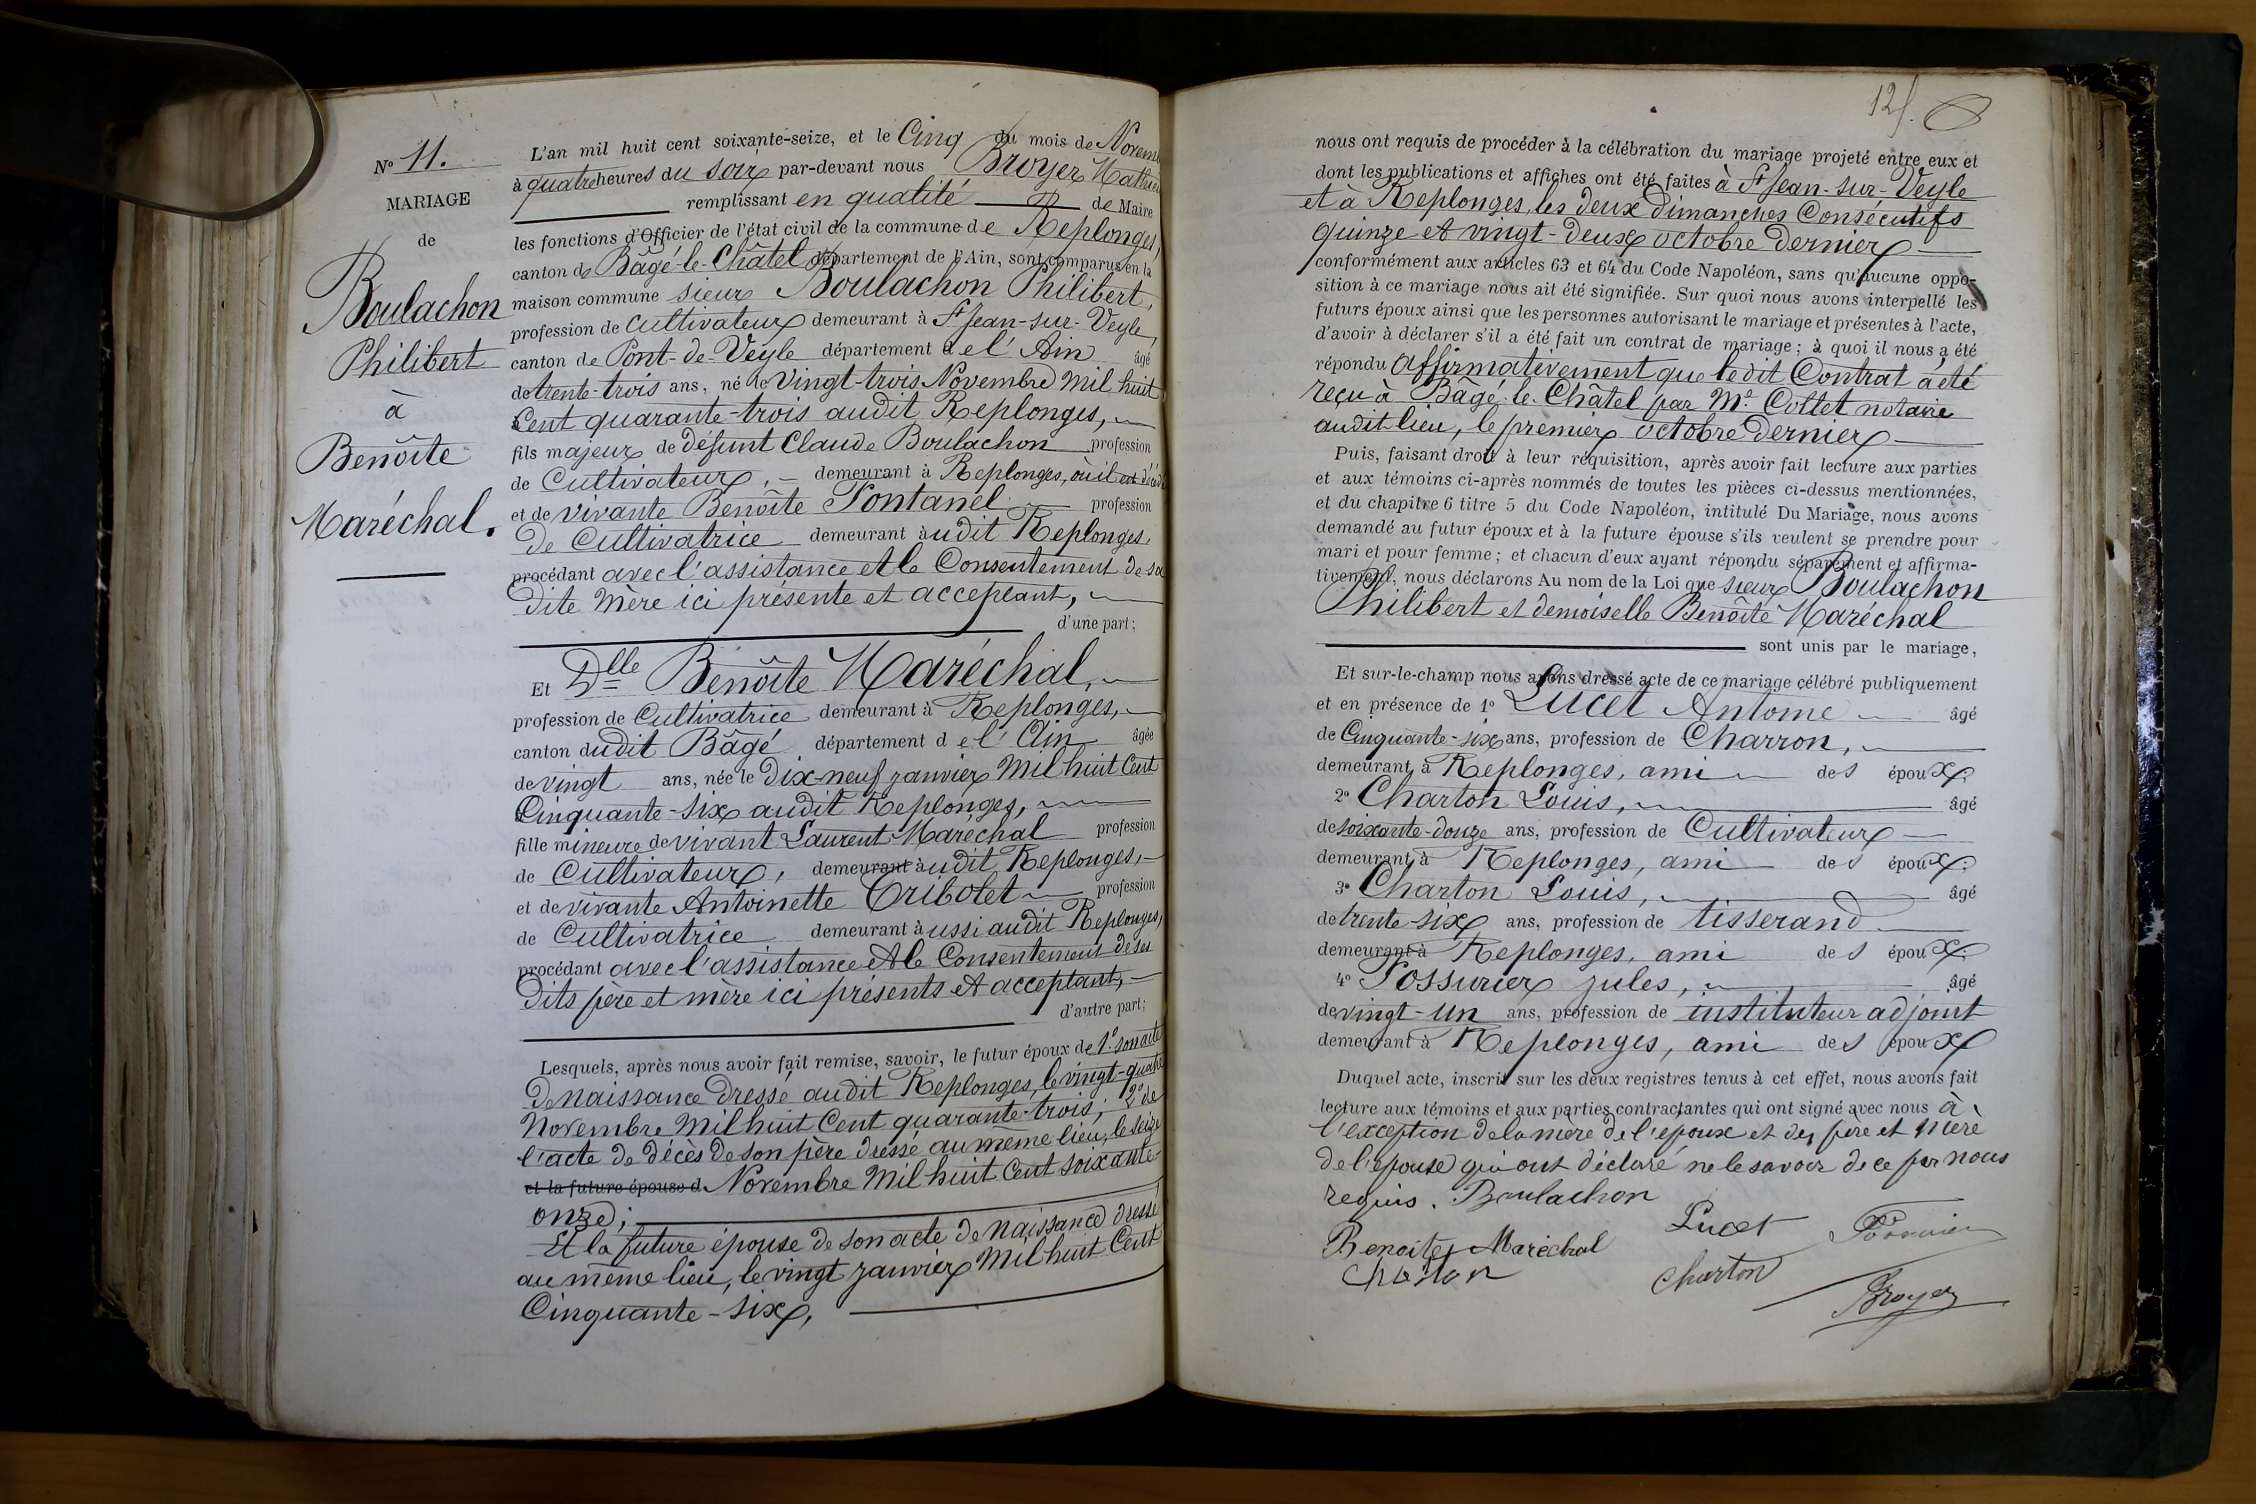 N° 11.
MARIAGE
de
Boulachon
Philibert
à
Benoîte
Maréchal.
L'an mil huit cent soixante-seize, et le Cinq du mois de Novem
à quatre heures du soir par-devant nous Broyer Mathieu
remplissant en qualité de Maire
les fonctions d'Officier de l'état civil de la commune de Replonges,
canton de Bâgé-le-Châtel département de l'Ain, sont comparus en la
maison commune sieur Boulachon Philibert,
profession de cultivateur demeurant à St Jean-sur-Veyle,
canton de Pont-de-Veyle département de l'Ain âgé
de trente-trois ans, né le vingt-trois Novembre mil huit
Cent quarante-trois audit Replonges,
fils majeur de défunt Claude Boulachon profession
de Cultivateur, demeurant à Replonges, où il est décédé
et de vivante Benoîte Fontanel profession
de Cultivatrice demeurant audit Replonges,
procédant avec l'assistance et le Consentement de sa
dite mère ici présente et acceptant,
d'une part;
Et Dlle Benoîte Maréchal,
profession de Cultivatrice demeurant à Replonges,
canton dudit Bâgé département de l'Ain âgée
de vingt ans, née le Dix-neuf janvier Mil huit Cent
Cinquante-six audit Replonges,
fille mineure de vivant Laurent Maréchal profession
de Cultivateur, demeurant audit Replonges,
et de vivante Antoinette Tribolet profession
de Cultivatrice demeurant aussi audit Replonges,
procédant avec l'assistance et le Consentement de ses
dits père et mère ici présents et acceptant,
d'autre part;
Lesquels, après nous avoir fait remise, savoir, le futur époux de 1° son acte
de Naissance dressé audit Replonges, le vingt-quatre
Novembre Mil huit Cent quarante-trois; 2° de
l'acte de décès de son père dressé au même lieu, le seize
et la future épouse d Novembre Mil huit Cent soixante-
onze;
Et la future épouse de son acte de Naissance dressé
au même lieu, le vingt janvier Mil huit Cent
Cinquante-six,
125.
nous ont requis de procéder à la célébration du mariage projeté entre eux et
dont les publications et affiches ont été faites à St Jean-sur-Veyle
et à Replonges, les deux dimanches Consécutifs
quinze et vingt-deux octobre dernier
conformément aux articles 63 et 64 du Code Napoléon, sans qu'aucune oppo-
sition à ce mariage nous ait été signifiée. Sur quoi nous avons interpellé les
futurs époux ainsi que les personnes autorisant le mariage et présentes à l'acte,
d'avoir à déclarer s'il a été fait un contrat de mariage; à quoi il nous a été
répondu affirmativement que ledit Contrat a été
reçu à Bâgé-le-Châtel par Me Collet notaire
audit lieu, le premier octobre dernier
Puis, faisant droit à leur réquisition, après avoir fait lecture aux parties
et aux témoins ci-après nommés de toutes les pièces ci-dessus mentionnées,
et du chapitre 6 titre 5 du Code Napoléon, intitulé Du Mariage, nous avons
demandé au futur époux et à la future épouse s'ils veulent se prendre pour
mari et pour femme; et chacun d'eux ayant répondu séparément et affirma-
tivement, nous déclarons Au nom de la Loi que sieur Boulachon
Philibert et demoiselle Benoîte Maréchal
sont unis par le mariage,
Et sur-le-champ nous avons dressé acte de ce mariage célébré publiquement
et en présence de 1° Lucet Antoine âgé
de Cinquante-six ans, profession de Charron,
demeurant à Replonges, ami des époux.
2° Charton Louis, âgé
de soixante-douze ans, profession de Cultivateur
demeurant à Replonges, ami des époux.
3° Charton Louis, âgé
de trente-six ans, profession de tisserand
demeurant à Replonges, ami des époux.
4° Fossurier jules, âgé
de vingt-un ans, profession de instituteur adjoint
demeurant à Replonges, ami des époux
Duquel acte, inscrit sur les deux registres tenus à cet effet, nous avons fait
lecture aux témoins et aux parties contractantes qui ont signé avec nous à
l'exception de la mère de l'époux et des père et mère
de l'épouse qui ont déclaré ne le savoir de ce par nous
requis. Boulachon
Benoite Maréchal Lucet
Charton Charton
Broyer